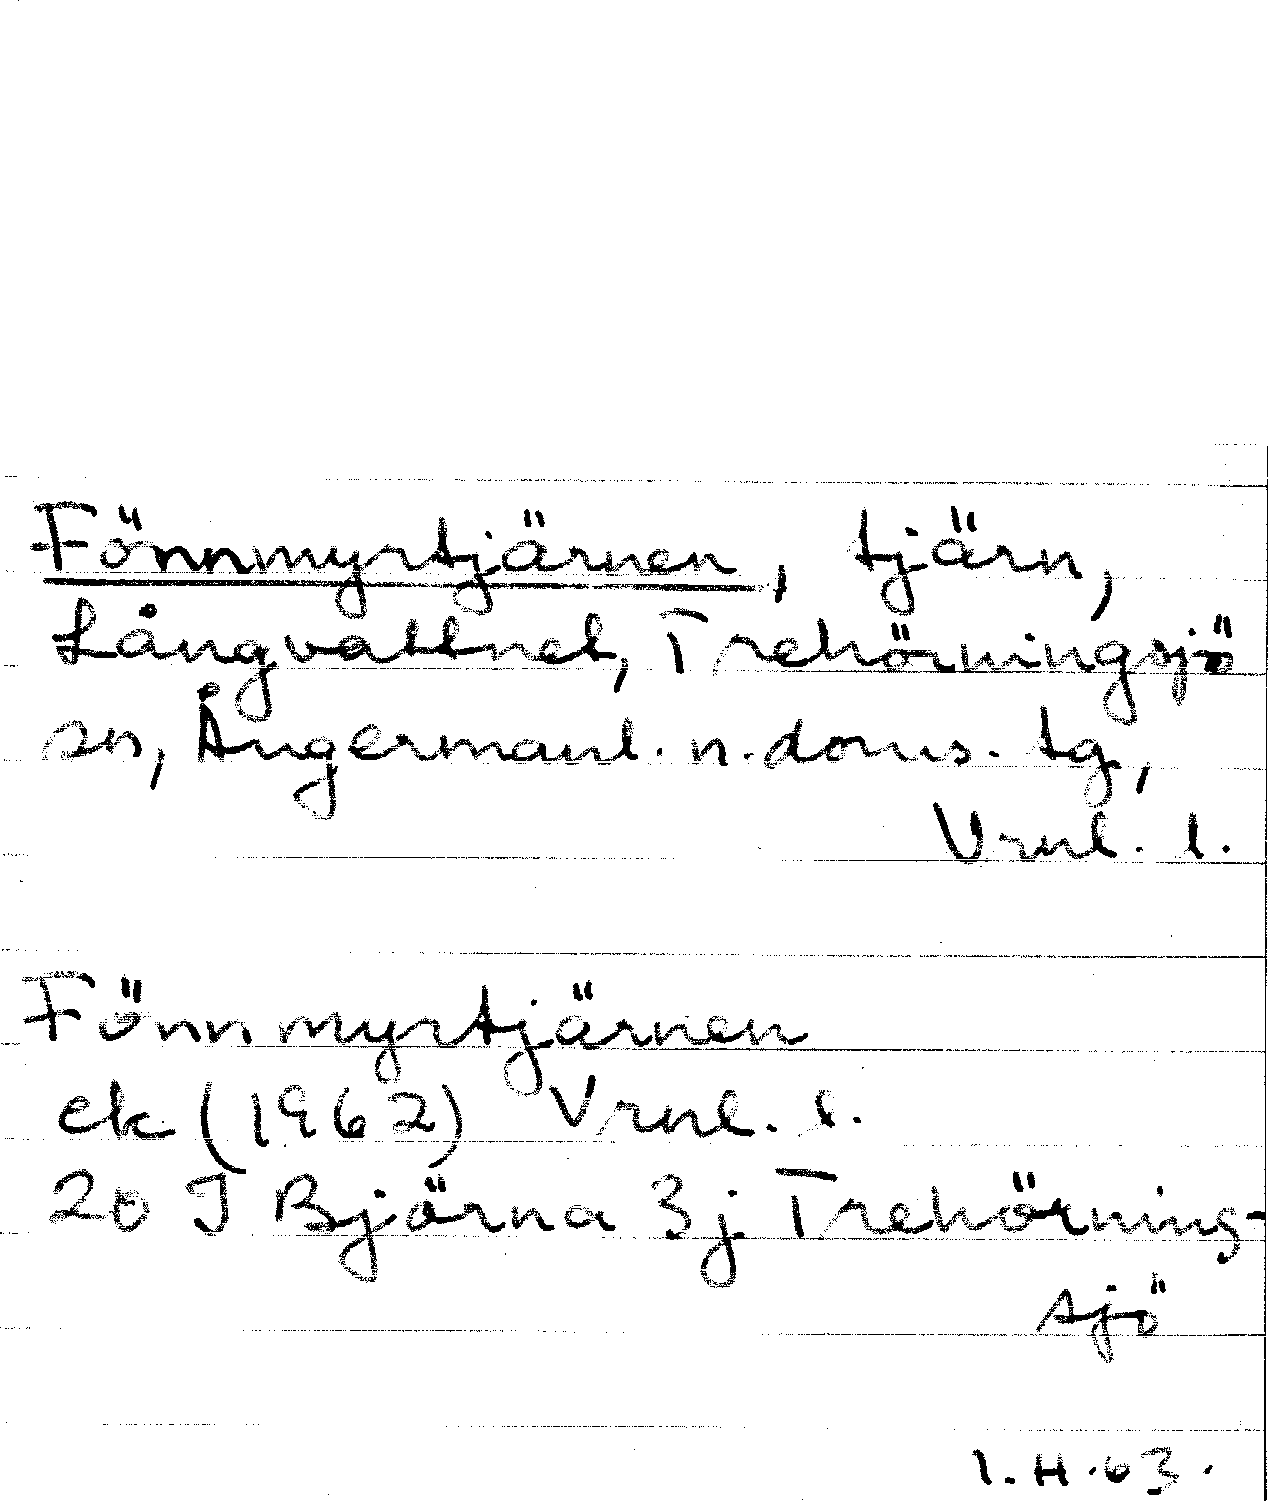 Fönnmyrtjärnen, tjärn,
Långvattnet, Trehörningsjö
sn, Ångermanl. n. doms. tg,
Vrnl. l.
Fönnmyrtjärnen
ek (1962) Vrnl. l.
20 J Björna 3j Trehörning-
sjö
I.H.63.